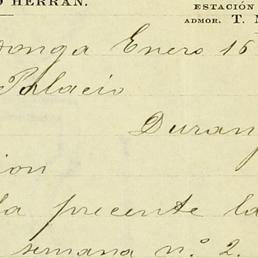 O HERRÁN.
ESTACIÓN
ADMOR. T. M
onga Enero 16
Palacio
Duran
ion
la precente la
semana n.º 2.